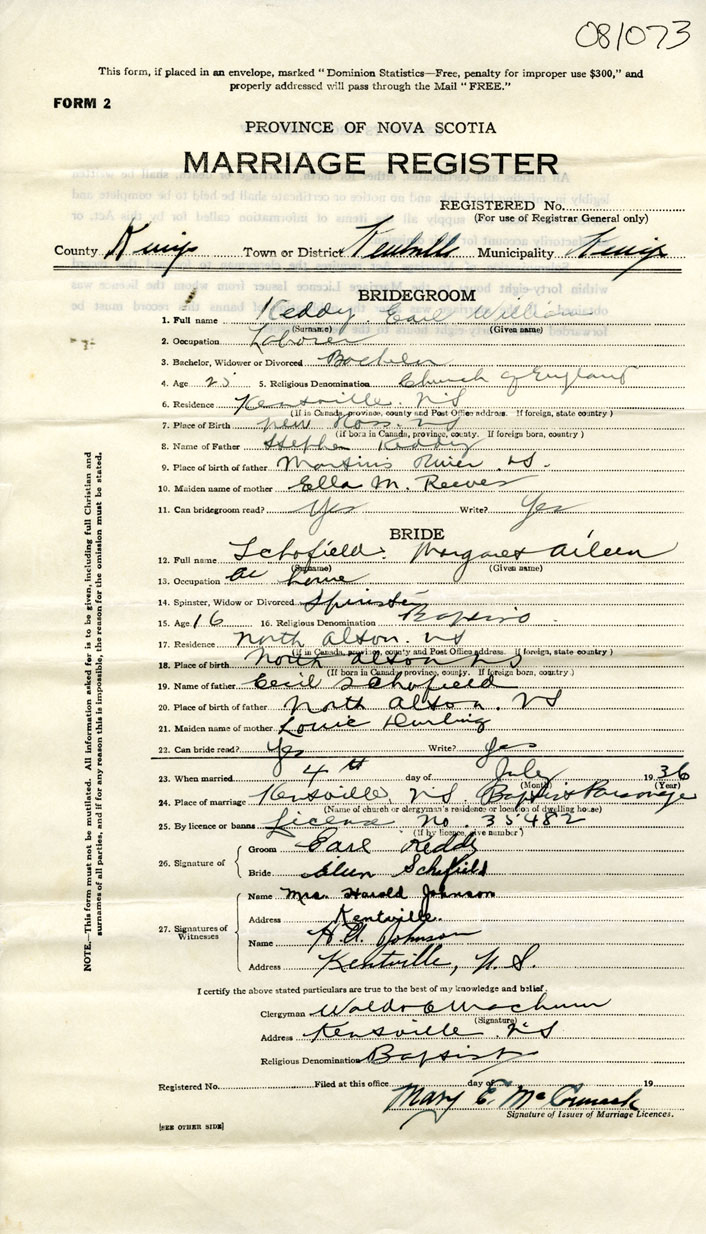 081073
This form, if placed in an envelope, marked "Dominion Statistics—Free, penalty for improper use $300," and
properly addressed will pass through the Mail "FREE."
FORM 2
PROVINCE OF NOVA SCOTIA
MARRIAGE REGISTER
REGISTERED No.
(For use of Registrar General only)
County Kings Town or District Kentville Municipality Kings
BRIDEGROOM
1. Full name Keddy Earl William
(Surname) (Given name)
2. Occupation Laborer
3. Bachelor, Widower or Divorced Bachelor
4. Age 25 5. Religious Denomination Church of England
6. Residence Kentville. NS
(If in Canada, province, county and Post Office address. If foreign, state country)
7. Place of Birth New Ross. NS
(if born in Canada, province, county. If foreign born, country)
8. Name of Father Stephen Keddy
9. Place of birth of father Martins River NS.
10. Maiden name of mother Ella M. Reeves
11. Can bridegroom read? Yes Write? Yes
BRIDE
12. Full name Schofield. Margaret Aileen
(Surname) (Given name)
13. Occupation at home
14. Spinster, Widow or Divorced Spinster
15. Age 16 16. Religious Denomination Baptist
17. Residence North Alton. NS
(If in Canada, province, county and Post Office address. If foreign, state country)
18. Place of birth North Alton NS
(If born in Canada, province, county. If foreign born, country)
19. Name of father Cecil Schofield
20. Place of birth of father North Alton. NS
21. Maiden name of mother Louie Durling
22. Can bride read? Yes Write? Yes
23. When married 4th day of July 1936
(Month) (Year)
24. Place of marriage Kentville, NS. Baptist Parsonage
(Name of church or clergyman's residence or location of dwelling house)
25. By licence or banns License No. 35482
(If by licence, give number)
26. Signature of
Groom Earl Keddy
Bride Aileen Schofield
27. Signatures of Witnesses
Name Mrs. Harold Johnson
Address Kentville.
Name Johnson
Address Kentville, N. S.
I certify the above stated particulars are true to the best of my knowledge and belief.
Clergyman Waldo Machum
(Signature)
Address Kentville NS
Religious Denomination Baptist
Registered No. Filed at this office day of 19
Mary E. McCormack
Signature of Issuer of Marriage Licences.
[SEE OTHER SIDE]
NOTE.—This form must not be mutilated. All information asked for is to be given, including full Christian and
surnames of all parties, and if for any reason this is impossible, the reason for the omission must be stated.